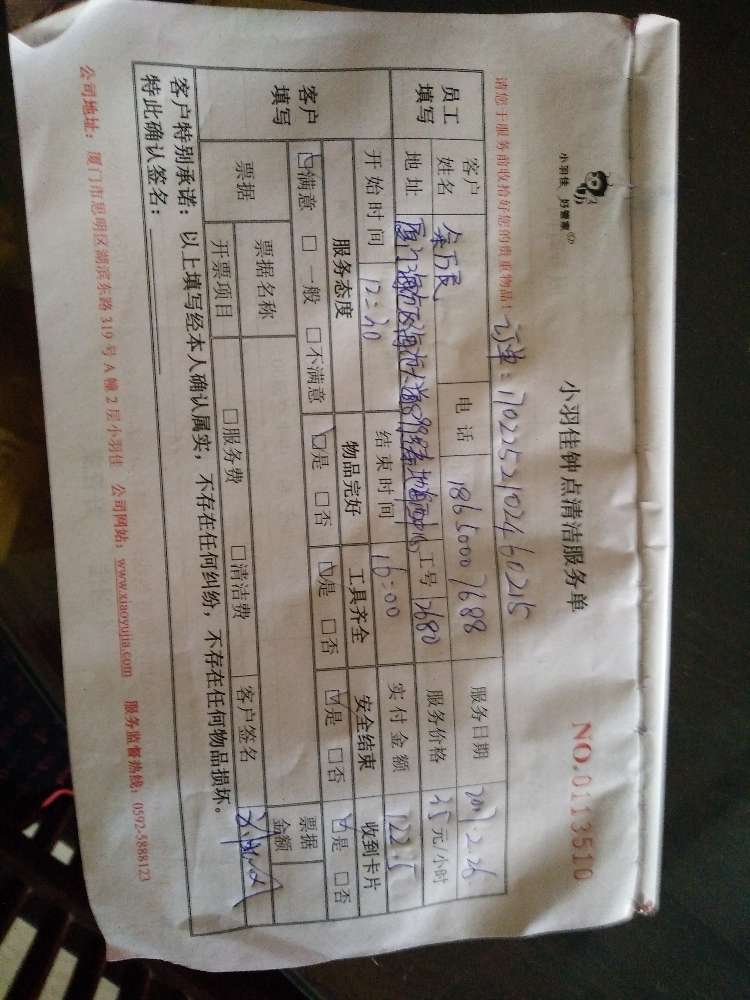 小羽佳 好管家
小羽佳钟点清洁服务单
NO.0113510
请您于服务前收拾好您的贵重物品！
订单：1702252102460215
员工填写 客户姓名 电话 18650007688 服务日期 2017.2.26
地址 工号 2680 服务价格 35元/小时
开始时间 12:30 结束时间 16:00 实付金额 122.5
客户填写 服务态度 物品完好 工具齐全 安全结束 收到卡片
☑满意 □一般 □不满意 ☑是 □否 ☑是 □否 ☑是 □否 ☑是 □否
票据 票据名称 票据金额
开票项目 □服务费 □清洁费 客户签名
客户特别承诺：以上填写经本人确认属实，不存在任何纠纷，不存在任何物品损坏。
特此确认签名：
公司地址：厦门市思明区湖滨东路319号A幢2层小羽佳 公司网站：www.xiaoyujia.com 服务监督热线：0592-5888123